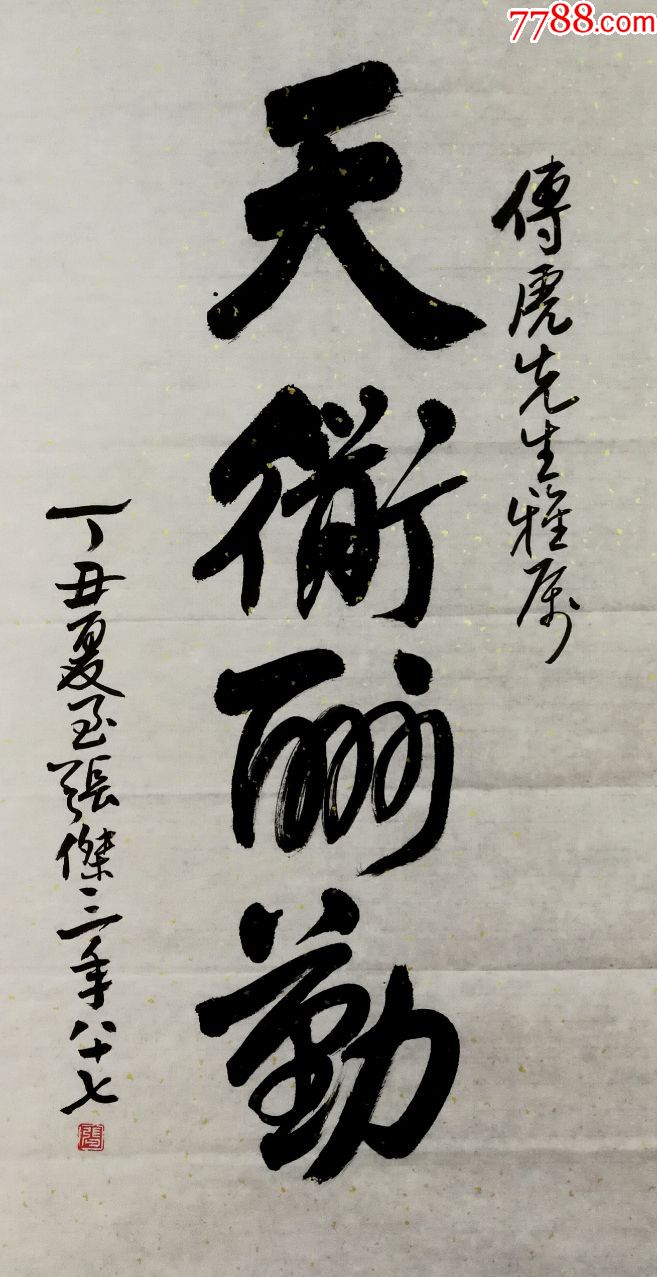 7788.com
傳虎先生雅属
天衟酬勤
丁丑夏至張傑三年八十七